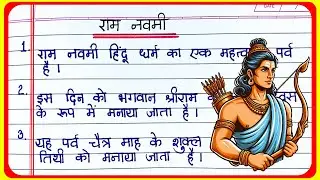 राम नवमी
1. राम नवमी हिंदू धर्म का एक पर्व
है।
2. इस दिन को भगवान श्रीराम
के रूप में मनाया जाता है।
3. यह पर्व चैत्र माह के शुक्ल
तिथी को मनाया जाता है।